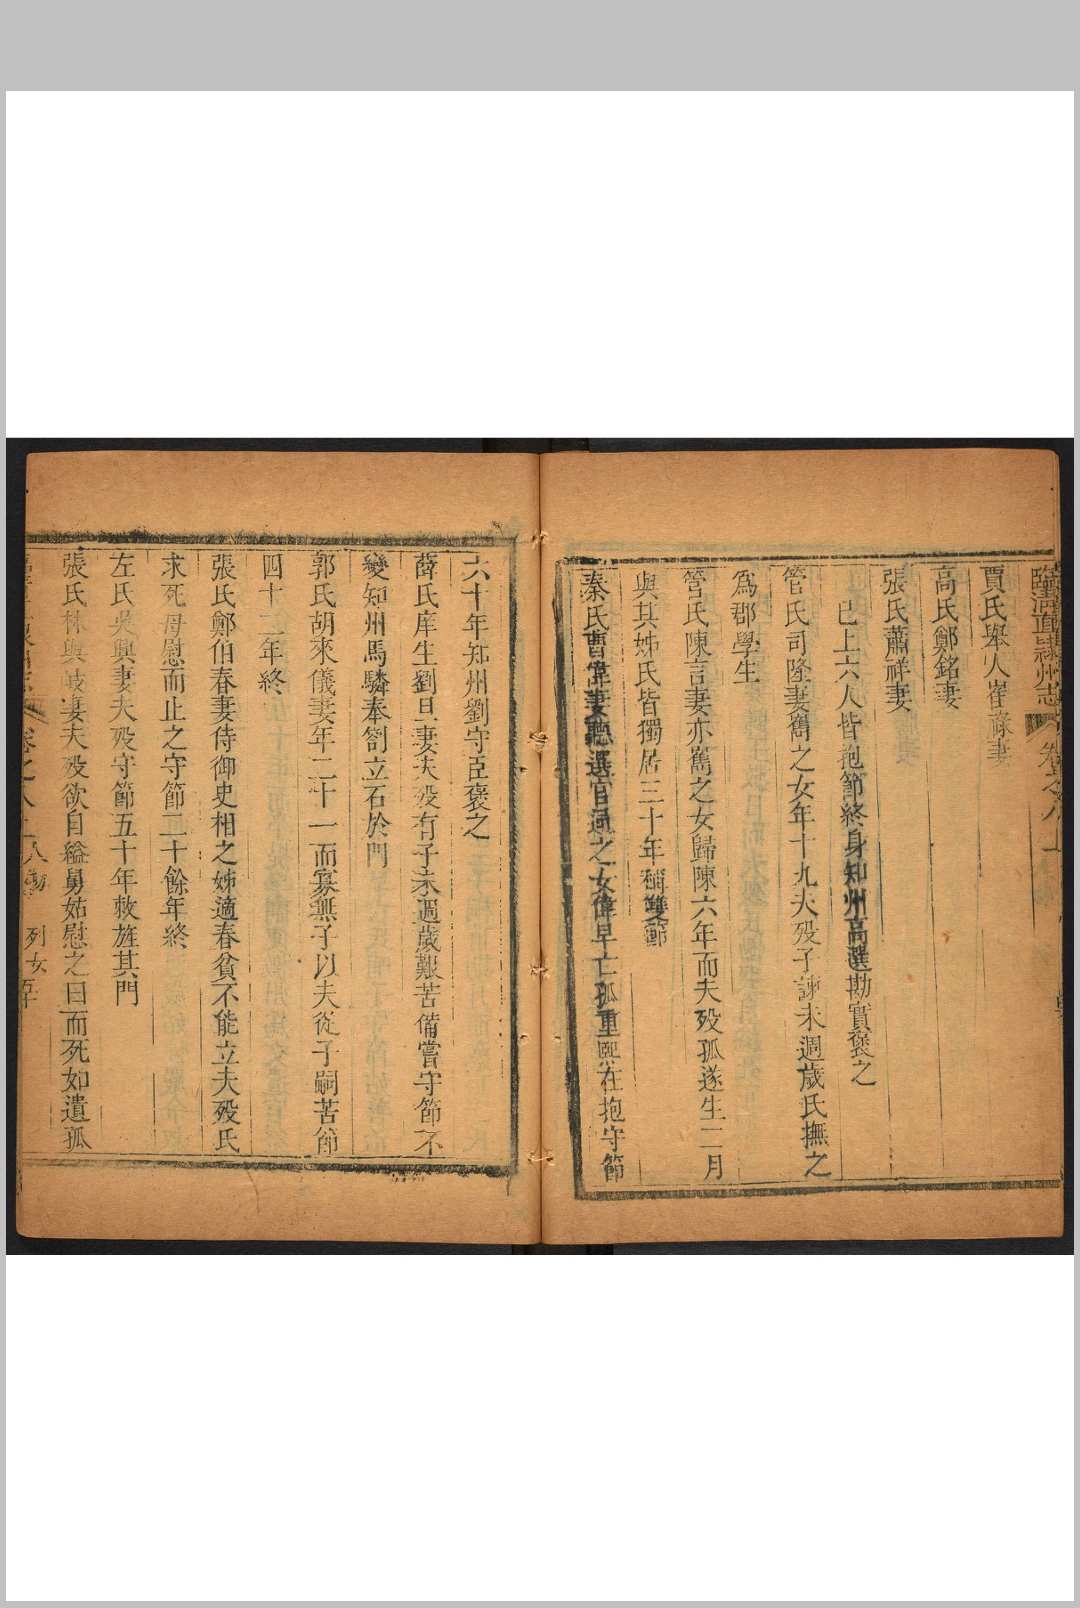 臨清直隸州志 卷之八上
賈氏舉人崔祿妻
高氏鄭銘妻
張氏蕭祥妻
已上六人皆抱節終身知州高選勘實褒之
管氏司隆妻雋之女年十九夫歿子諫未週歲氏撫之
為郡學生
管氏陳言妻亦雋之女歸陳六年而夫歿孤遂生二月
與其姊氏皆獨居三十年稱雙節
秦氏曹偉妻聽選官通之女偉早亡孤重熙在抱守節
六十年知州劉守臣褒之
薛氏庠生劉旦妻夫歿有子未週歲艱苦備嘗守節不
變知州馬驎奉劄立石於門
郭氏胡來儀妻年二十一而寡無子以夫從子嗣苦節
四十二年終
張氏鄭伯春妻侍御史相之姊適春貧不能立夫歿氏
求死母慰而止之守節二十餘年終
左氏吳興妻夫歿守節五十年敕旌其門
張氏林與岐妻夫歿欲自縊舅姑慰之曰而死如遺孤
卷之八上 列女 五十